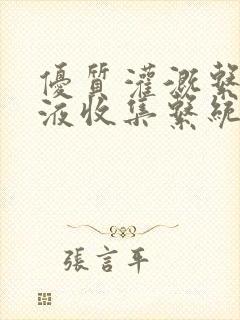 優質灌溉繫
液收集繫統
張言平